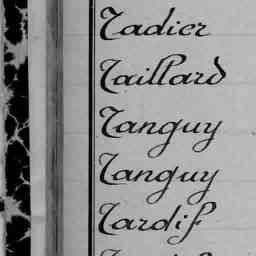 Tadier
Taillard
Tanguy
Tanguy
Tardif